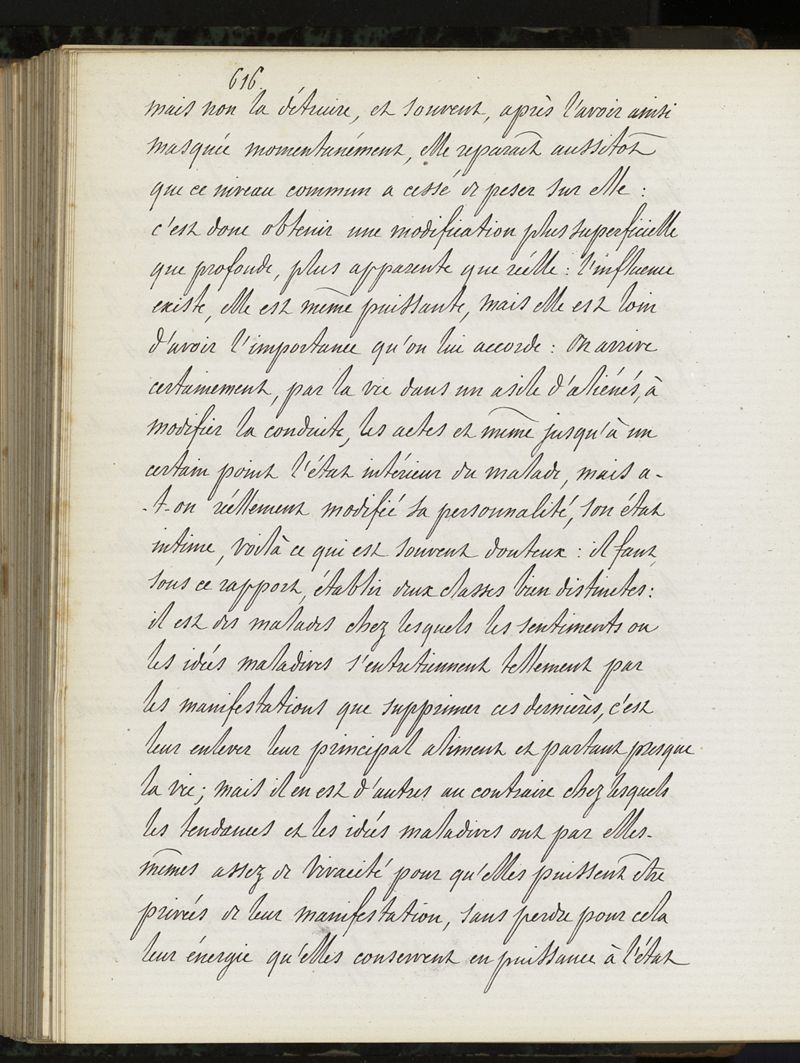 616
mais non la détruire, et souvent, après l'avoir ainsi
masquée momentanément, elle reparaît aussitôt
que ce niveau commun a cessé de peser sur elle :
c'est donc obtenir une modification plus superficielle
que profonde, plus apparente que réelle : l'influence
existe, elle est même puissante, mais elle est loin
d'avoir l'importance qu'on lui accorde : On arrive
certainement, par la vie dans un asile d'aliénés, à
modifier la conduite, les actes et même jusqu'à un
certain point l'état intérieur du malade, mais a-
-t-on réellement modifié sa personnalité, son état
intime, voilà ce qui est souvent douteux : il faut,
sous ce rapport, établir deux classes bien distinctes :
il est des malades chez lesquels les sentiments ou
les idées maladives s'entretiennent tellement par
les manifestations que supprimer ces dernières, c'est
leur enlever leur principal aliment et partant presque
la vie ; mais il en est d'autres au contraire chez lesquels
les tendances et les idées maladives ont par elles-
mêmes assez de vivacité pour qu'elles puissent être
privées de leur manifestation, sans perdre pour cela
leur énergie qu'elles conservent en puissance à l'état